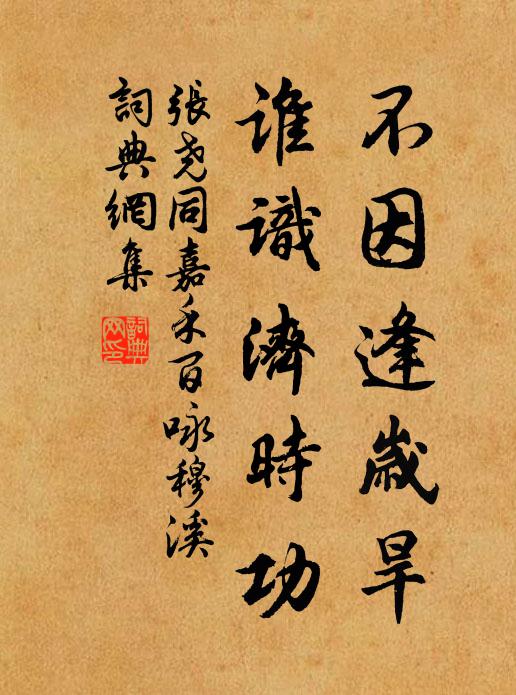 不因逢歲旱
誰識濟時功
張尧同嘉禾百咏穆溪
詞典網集
詞典
网印